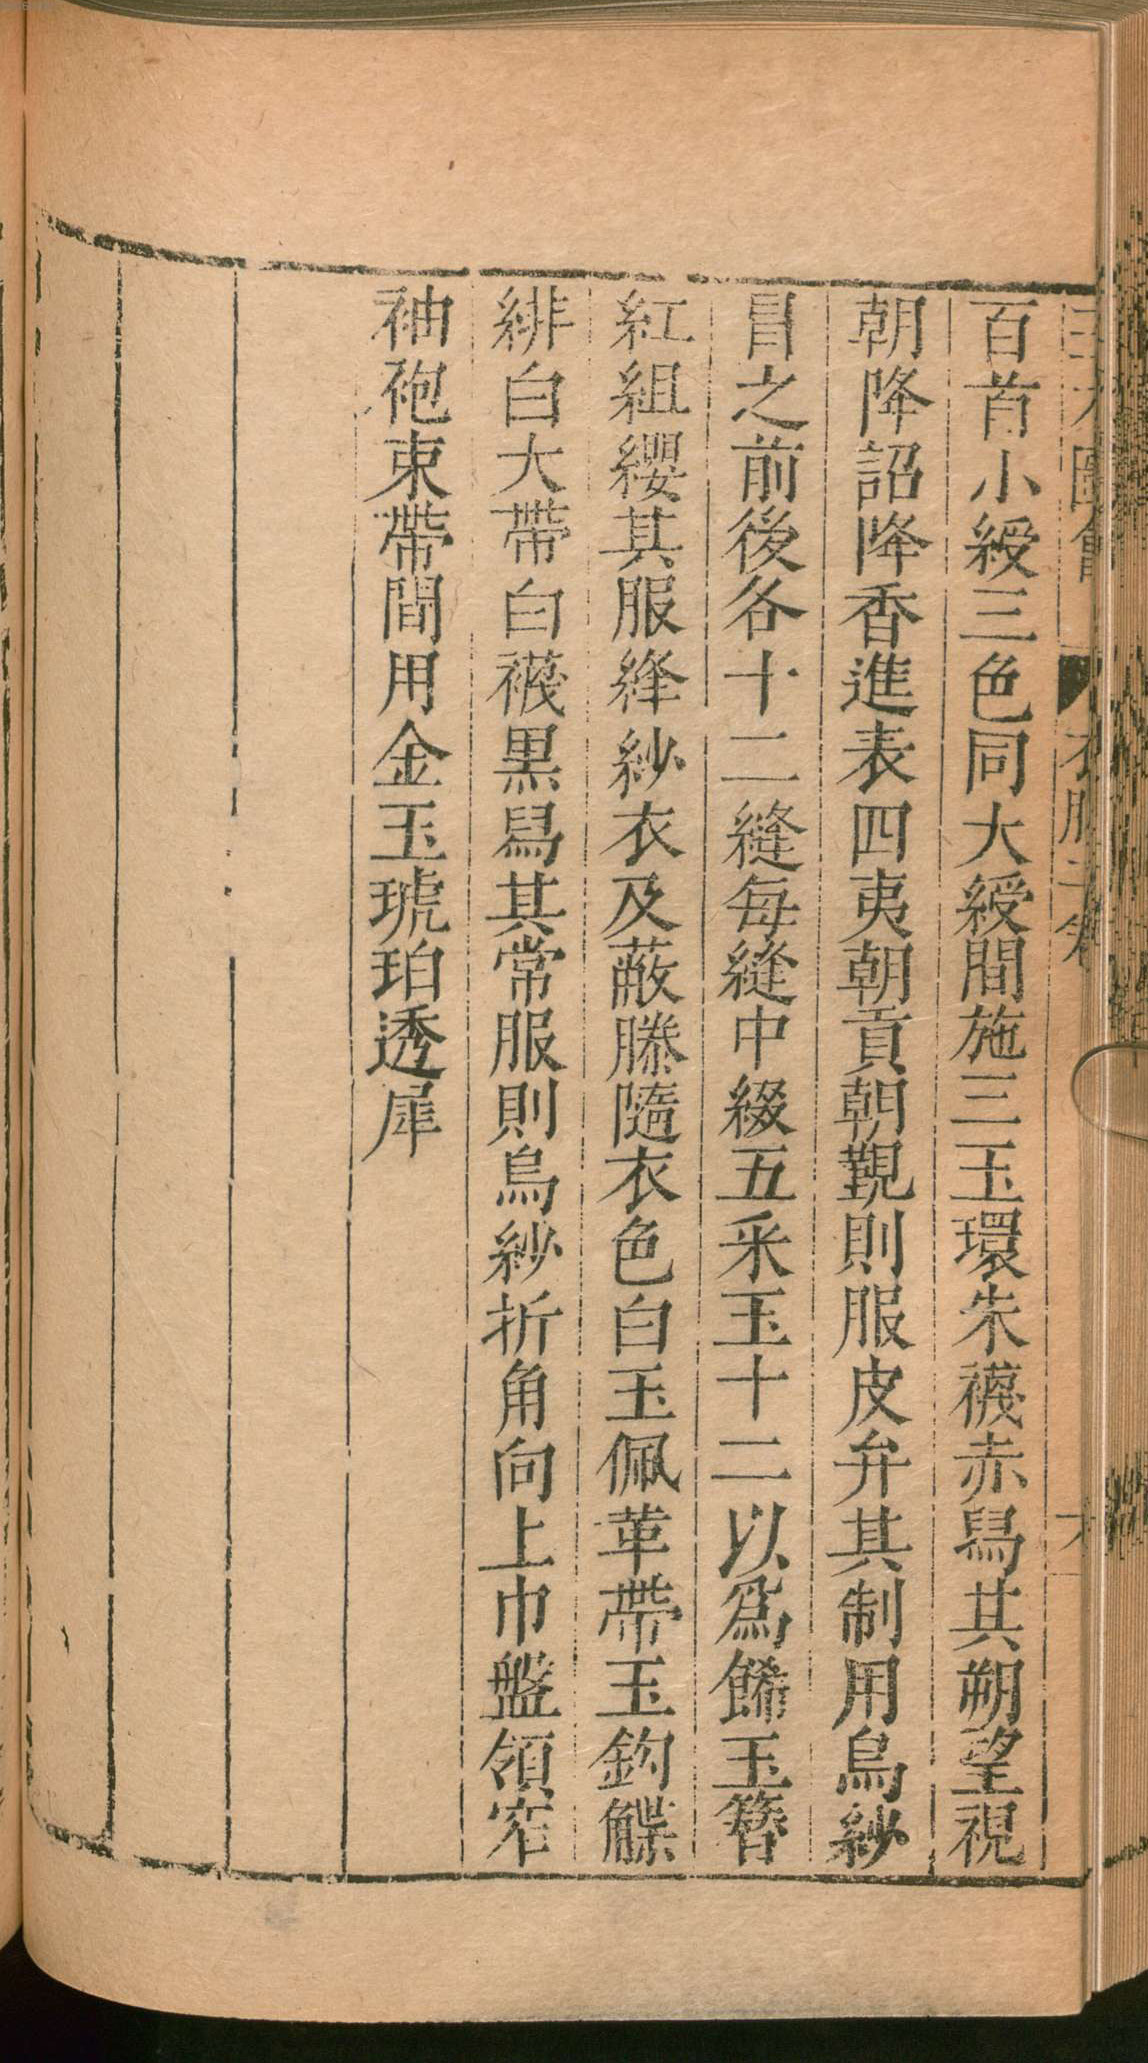 百首小綬三色同大綬間施三玉環朱襪赤舄其朔望視
朝降詔降香進表四夷朝貢朝覲則服皮弁其制用烏紗
冐之前後各十二縫每縫中綴五采玉十二以爲餙玉簪
紅組纓其服絳紗衣及蔽膝隨衣色白玉佩革帶玉鈎䚢
緋白大帶白襪黒舄其常服則烏紗折角向上巾盤領窄
袖袍束帶間用金玉琥珀透犀